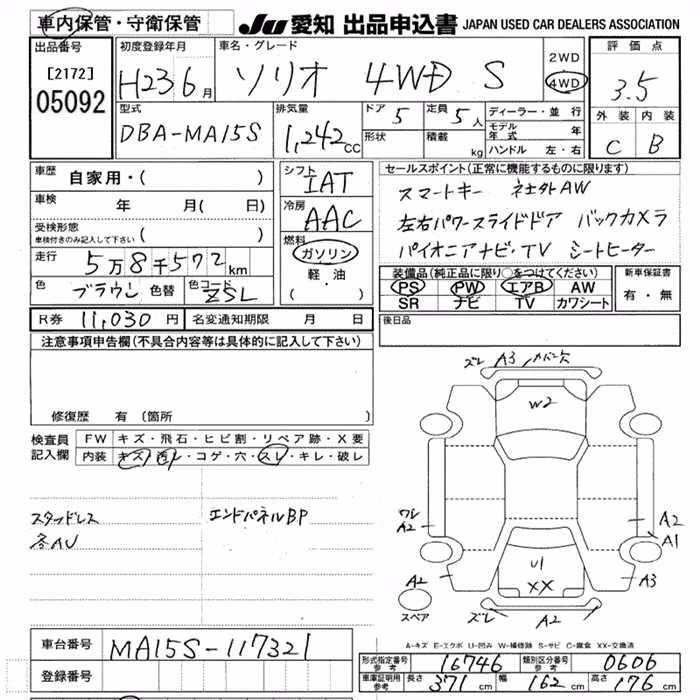 車内保管・守衛保管 JU 愛知 出品申込書 JAPAN USED CAR DEALERS ASSOCIATION
出品番号 初度登録年月 車名・グレード 2WD 4WD 評価点
[2172] 05092 H23 6月 ソリオ 4WD S 3.5
型式 排気量 ドア 5 定員 5人 ディーラー・並行 外装 内装
DBA-MA15S 1,242cc 形状 積載 kg モデル年式 年 C B
ハンドル 左・右
車歴 自家用・( ) シフト IAT セールスポイント(正常に機能するものに限ります)
車検 年 月( 日) 冷房 AAC スマートキー 社外AW
受検形態 車検付きのみ記入して下さい 燃料 左右パワースライドドア バックカメラ
走行 5万8千572km ガソリン パイオニアナビ・TV シートヒーター
色 ブラウン 色替 色コード ZSL 軽・油 ( ・ )
装備品(純正品に限り○をつけてください) 新車保証書
PS PW エアB AW 有・無
SR ナビ TV カワシート
R券 11,030円 名変通知期限 月 日 後日品
注意事項申告欄(不具合内容等は具体的に記入して下さい)
修復歴 有 (箇所
検査員記入欄 FW キズ・飛石・ヒビ割・リペア跡・X要
内装 キズ・汚レ・コゲ・穴・スレ・キレ・破レ
スタッドレス エンドパネルBP
ズレ A3
W2
ワレ A2 A2 A1
U1 XX
A2 A3
スペア ズレ A2
A-キズ E-エクボ U-凹み W-補修跡 S-サビ C-腐食 XX-交換済
車台番号 MA15S-117321
登録番号
形式指定番号 参考 16746 類別区分番号 参考 0606
車庫証明用 参考 長さ 371cm 幅 162cm 高さ 176cm